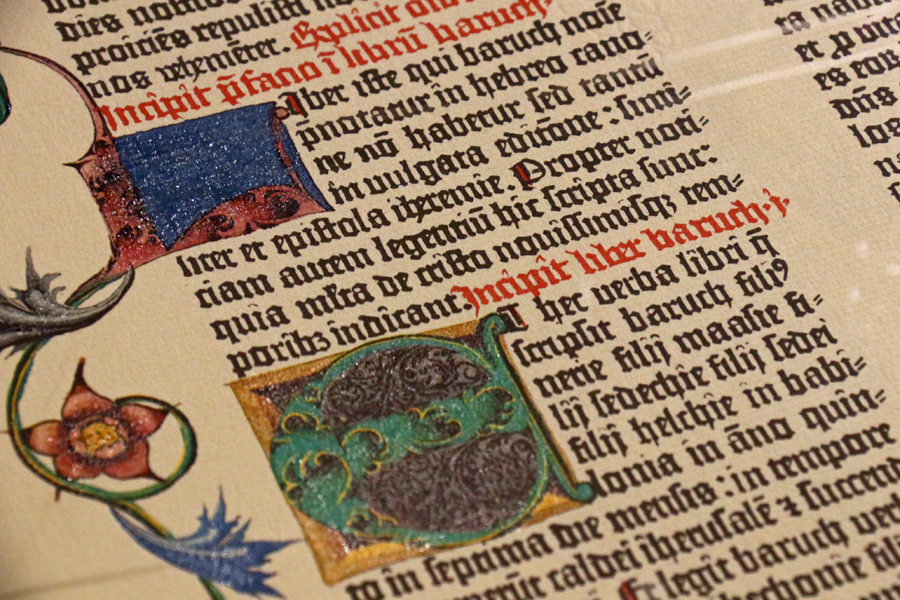 dies nomem repulisti
proiciēs repulisti
nos vehemēter. Explicit
Incipit p̄facio ī librū baruch.
Iber iste qui baruch noīe
pnotatur in hebreo cano-
ne nō habetur sed tantū
in vulgata edicōne : simi-
liter et epistola iheremie. Propter noti-
ciam autem legentiū hic scripta sunt:
quia mĺta de cristo novissimisqz tem-
poribz indicant. Incipit liber baruch.
Et hec verba libri q̄
scripsit baruch filiꝰ
nerie filij maasie fi-
lij sedechie filij sedei
filij helchie in babi-
lonia in āno quin-
to in septima die mensis : in tempore
caldei iherusalē ⁊ succend
Et legit baruch
iechonie filij
et
es
los